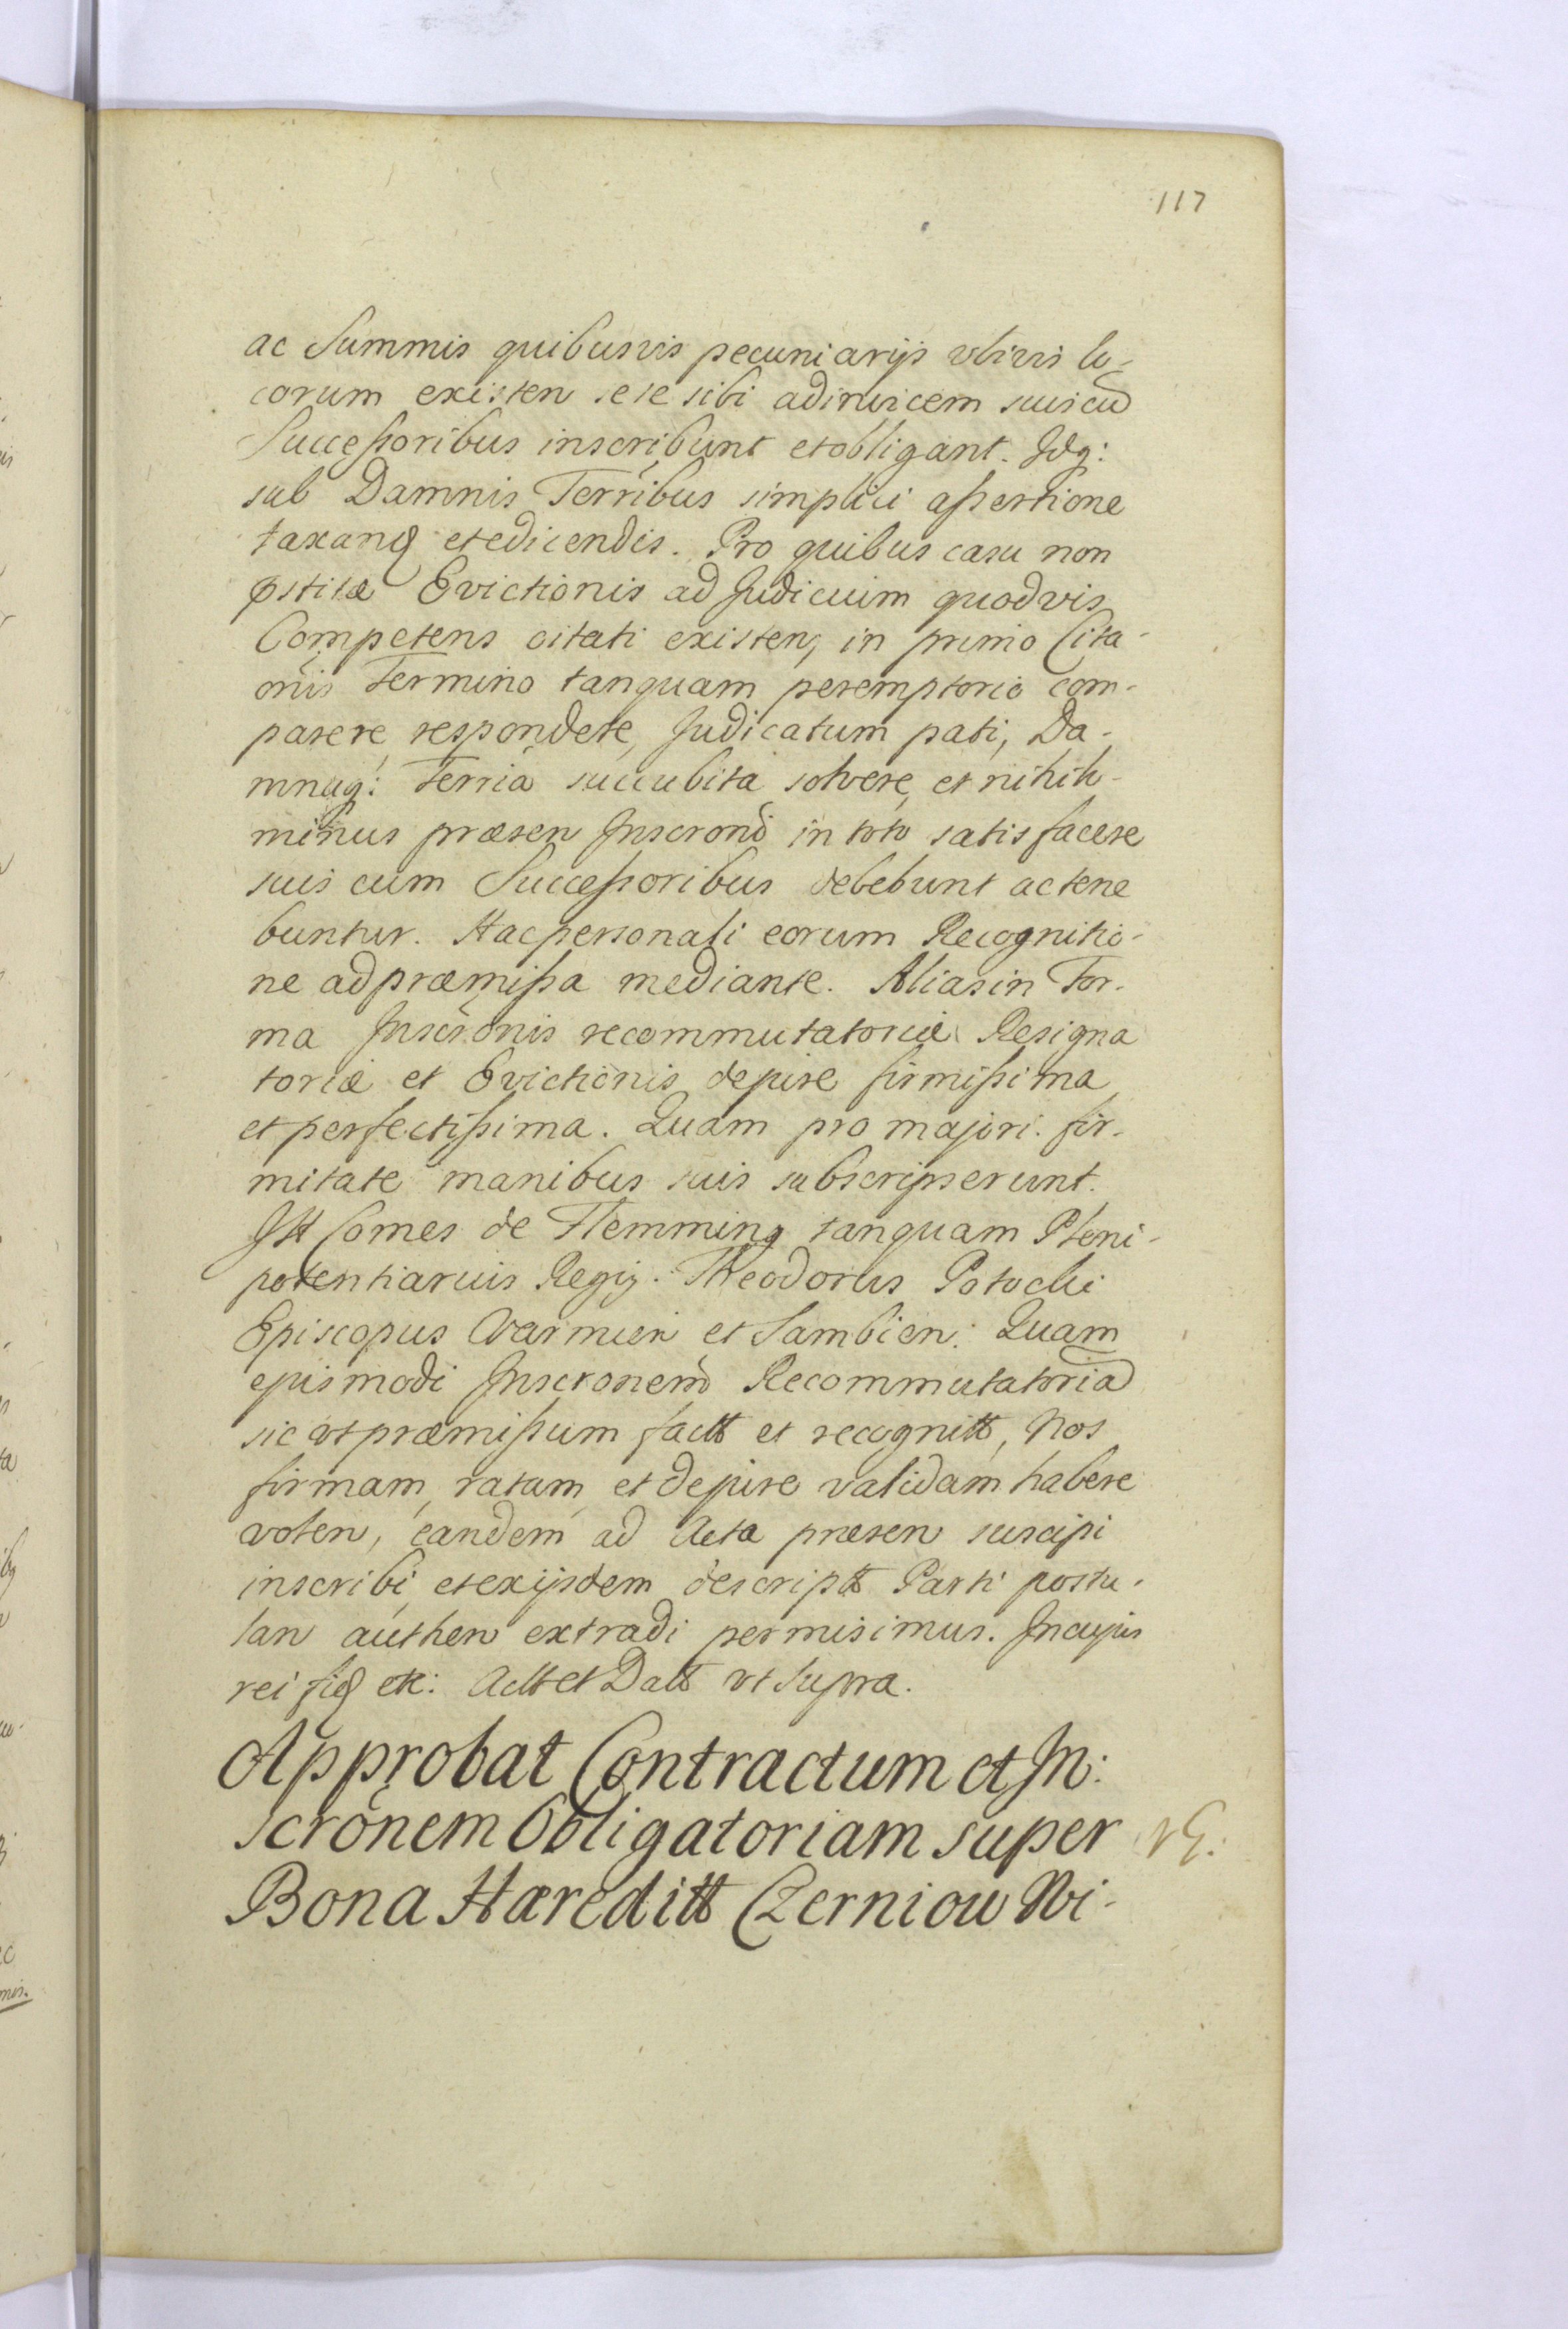 117
ac Summis quibusvis pecuniarijs vbivis lo-
corum existen sese sibi adinvicem suis cũ
Successoribus inscribunt et obligant. Idq:
sub Damnis Terribus simplici assertione
taxand et edicendis. Pro quibus casu non
pstitæ Evictionis ad Judicium quodvis
Competens citati existen, in primo Cita-
onis Termino tanquam peremptorio com-
parere, respondere, Judicatum pati, Da-
mnaq: Terria succubita solvere, et nihilo-
minus præsen Inscroni in toto satisfacere
suis cum Successoribus debebunt ac tene
buntur. Hac personali eorum Recognitio-
ne ad præmissa mediante. Alias in For-
ma Inscronis recommutatoriæ Resigna
toriæ et Evictionis de jure firmissima
et perfectissima. Quam pro majori fir-
mitate manibus suis subscripserunt.
JH Comes de Flemming tanquam Pleni-
potentiarius Regij. Theodorus Potocki
Episcopus Varmien et Sambien: Quam
ejusmodi Inscronem Recommutatoriã
sic vt præmissum factt et recognitt, Nos
firmam, ratam, et de jure validam habere
volen, eandem ad Acta præsen suscipi
inscribi, et ex ijsdem descriptt Parti postu-
lan authen extradi permisimus. In cujus
rei fid etc: Actt et Datt vt Supra.
Approbat Contractum et In:
scrõnem Obligatoriam super
Bona Hæreditt Czerniow Wi-